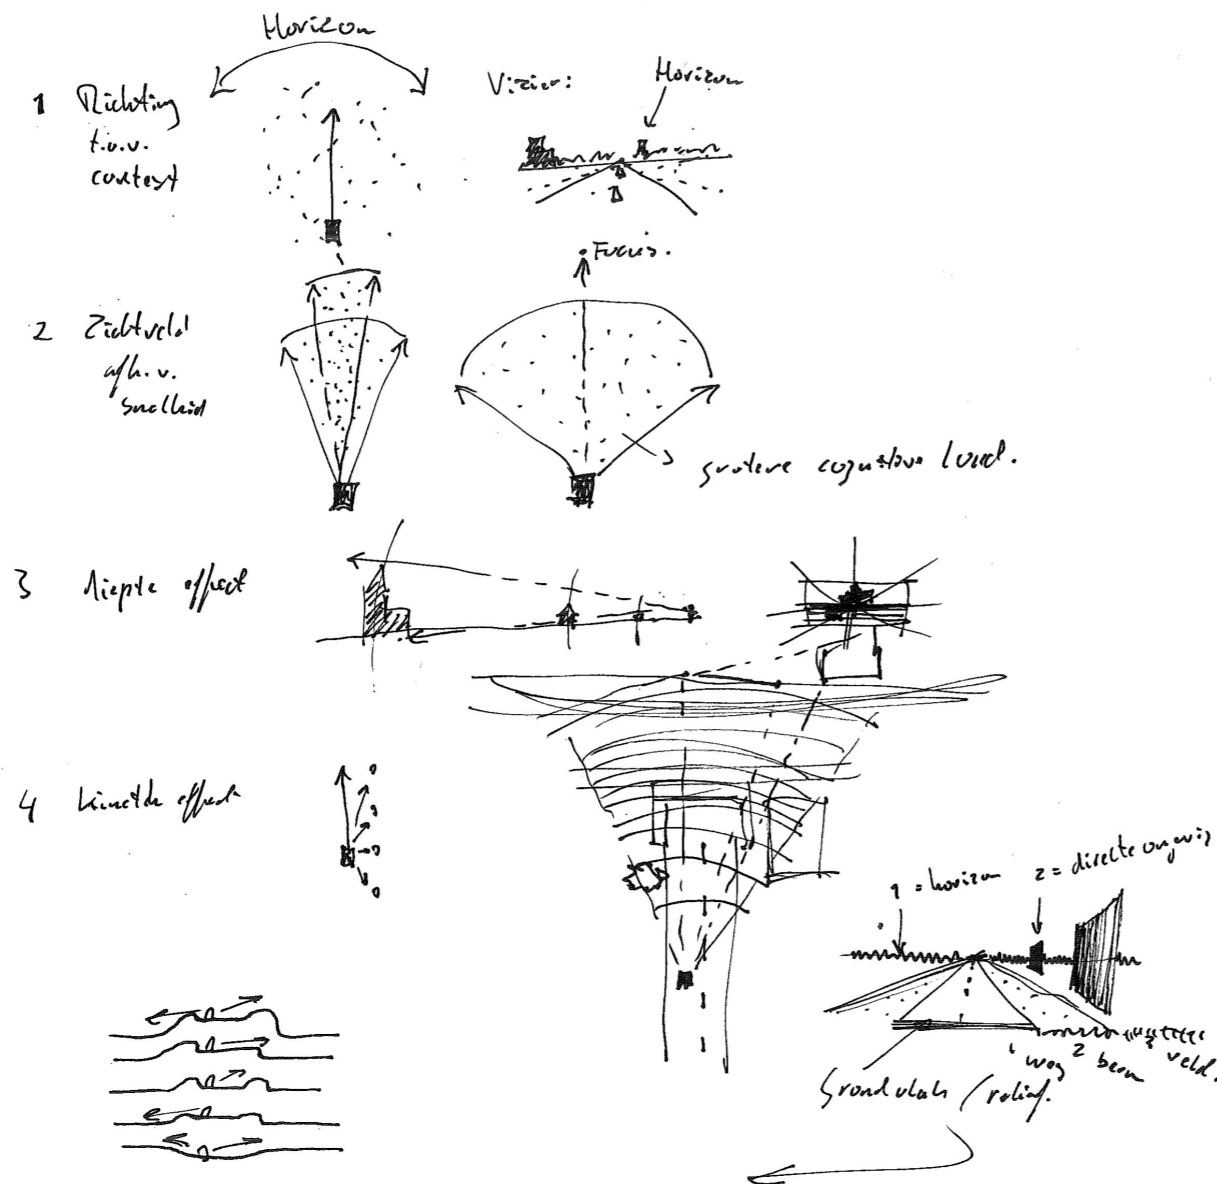 Horizon
1 Richting
t.o.v.
context
Vizier:
Horizon
Focus.
2 Zichtveld
afh. v.
snelheid
grotere cognitive load.
3 diepte effect
4 kinetch effect
1 = horizon
2 = directe omgeving
1 weg 2 berm 3 veld.
Grondvlak / relief.